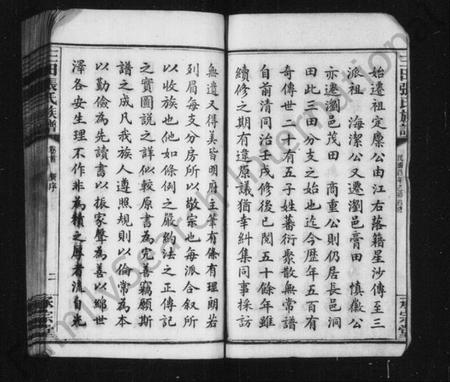 始遷祖定廉公由江右落籍星沙傳至三
派祖 海濱公又遷瀏邑膏田 慎徽公
亦遷瀏邑茂田 商重公則仍居長邑洞
田此三田分支之始也迄今歷年五百有
奇傳世二十有五子姓蕃衍聚散無常譜
自前清同治壬戌修後已閱五十餘年雖
續修之期有違原議猶幸糾集同事採訪
無遺又得美皆明府主筆有條有理朗若
列眉每支分房所以敬宗也每派合敘所
以收族也他如條例之嚴約法之正傳記
之實圖說之詳似較原書為完善竊願斯
譜之成凡我族人遵照規則以倫常為本
以勤儉為先讀書以振家聲為善以綿世
澤各安生理不作非為積之厚者流自光
三田張氏族譜
卷首 新序
二
永宗堂